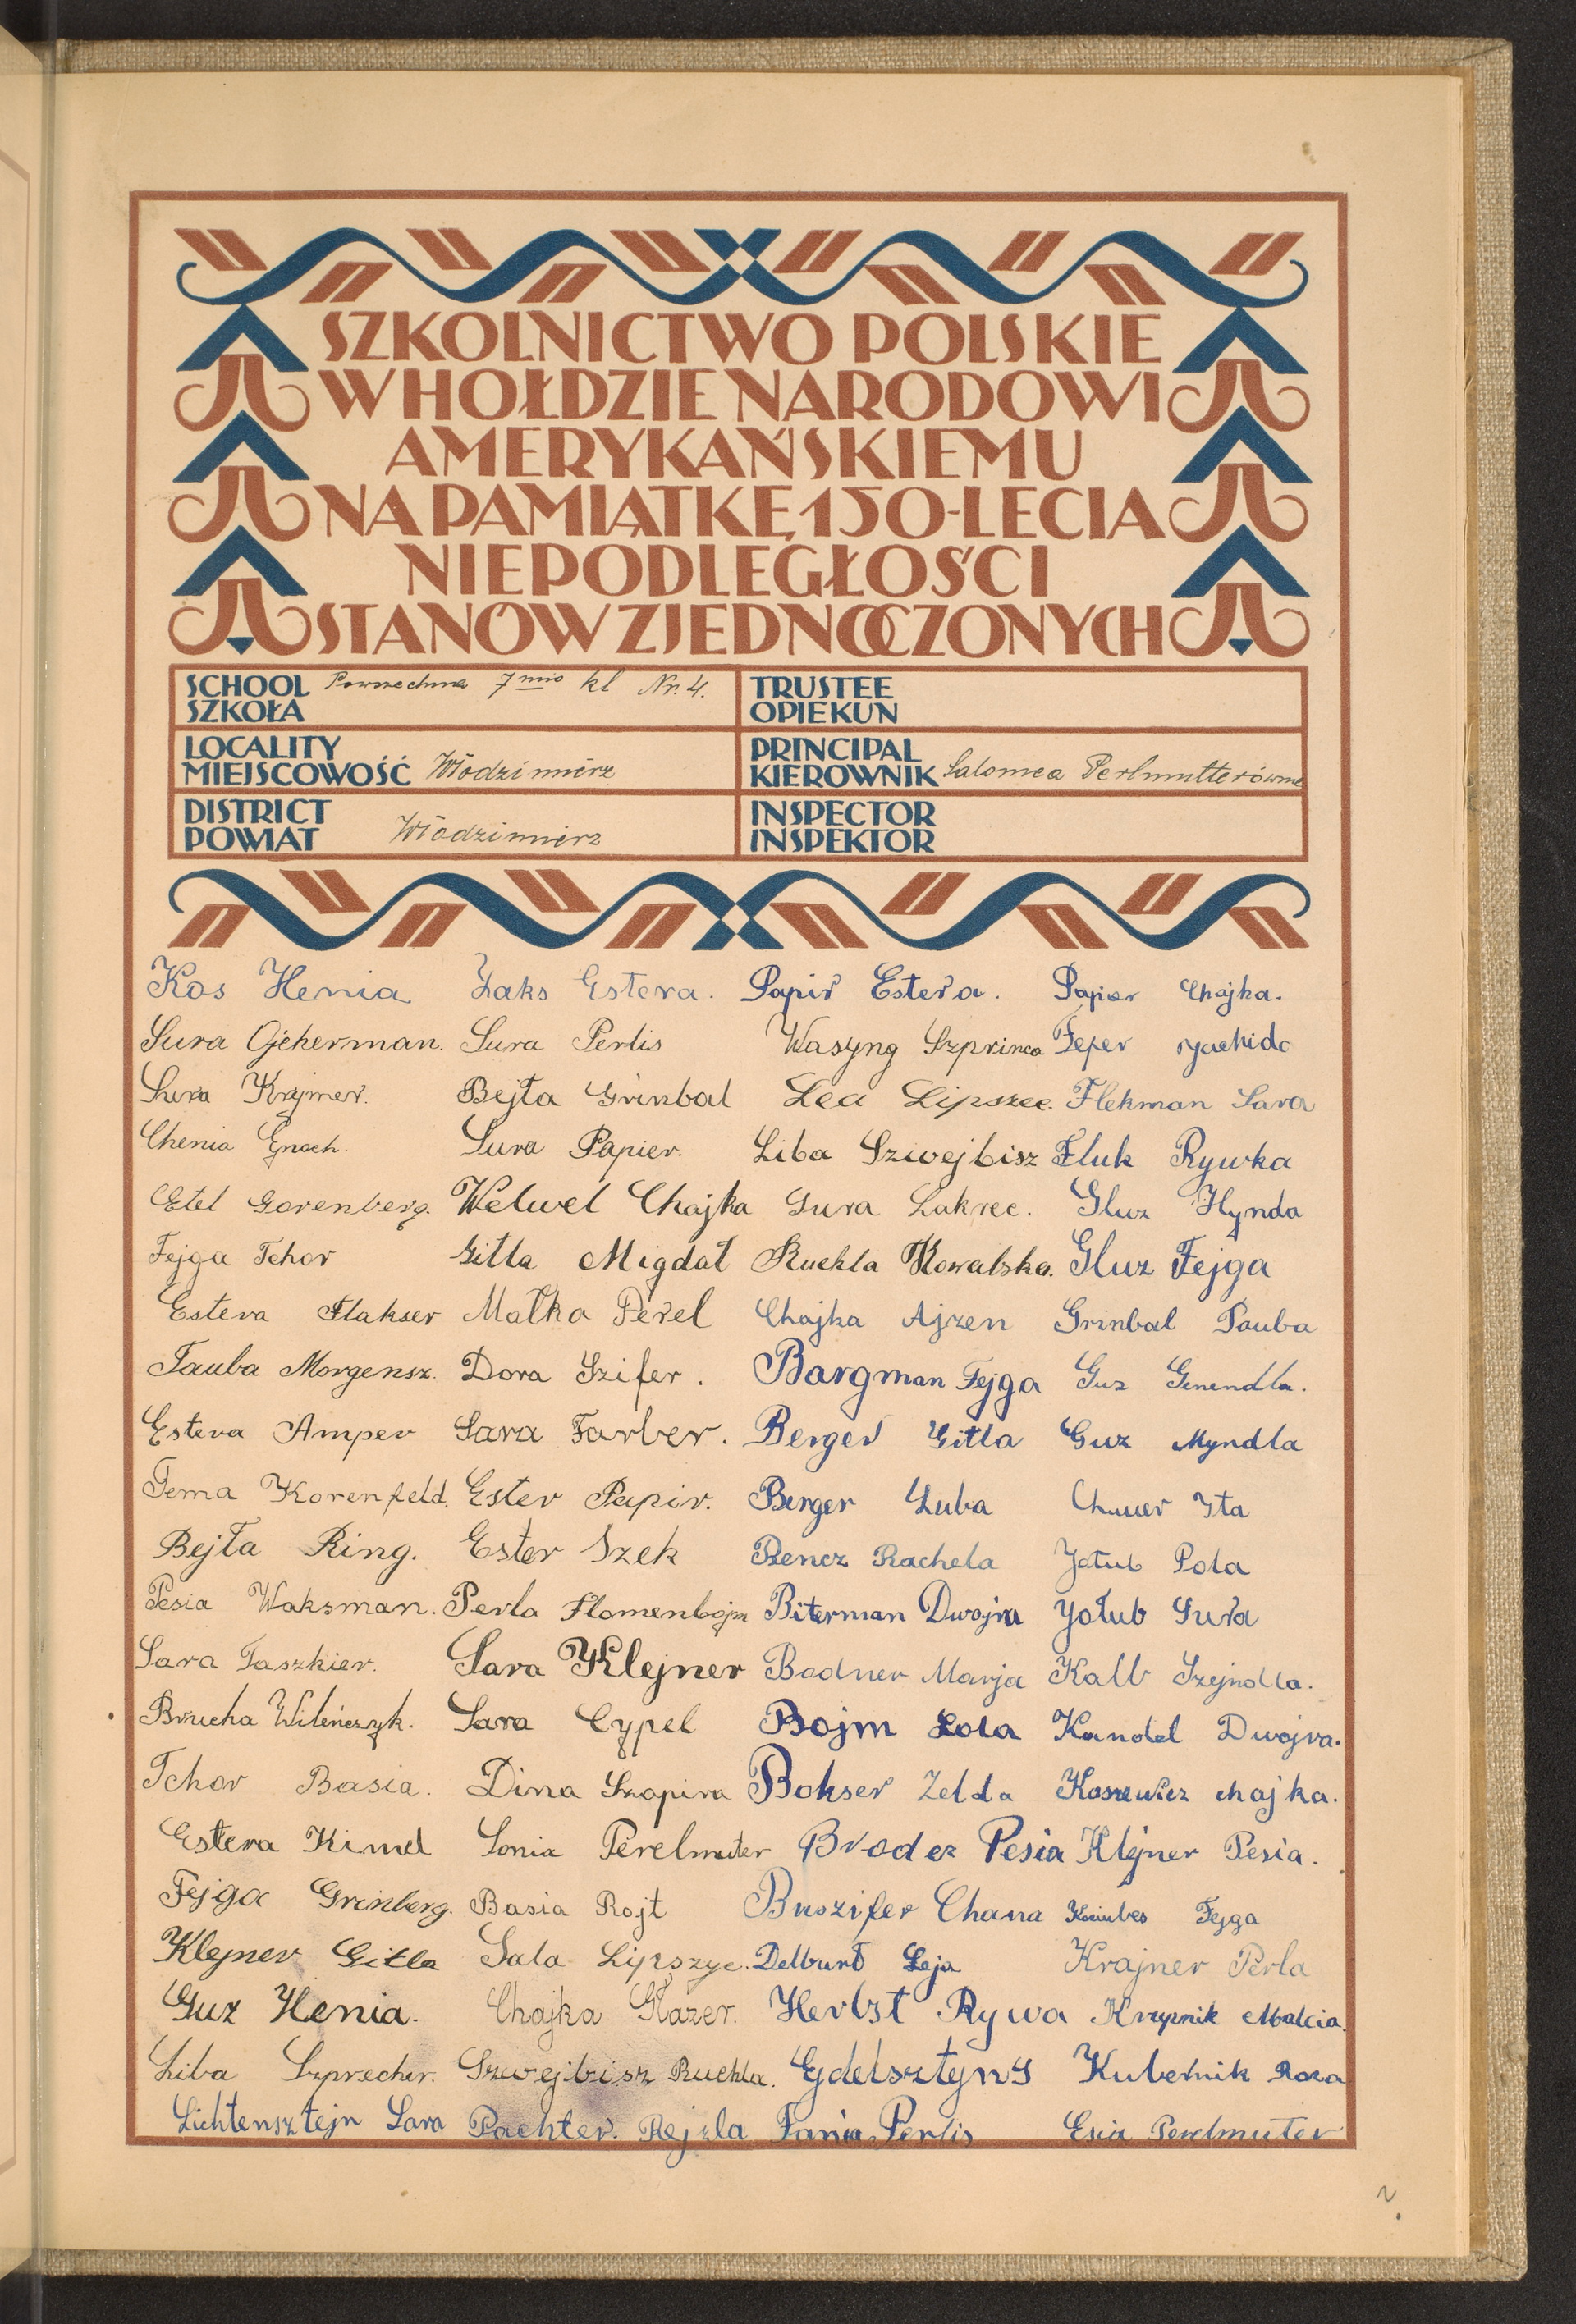 SZKOLNICTWO POLSKIE
W HOŁDZIE NARODOWI
AMERYKAŃSKIEMU
NA PAMIĄTKĘ 150-LECIA
NIEPODLEGŁOŚCI
STANÓW ZJEDNOCZONYCH
SCHOOL
SZKOŁA Powszechna 7mio kl Nr. 4.
TRUSTEE
OPIEKUN
LOCALITY
MIEJSCOWOŚĆ Włodzimierz
PRINCIPAL
KIEROWNIK Salomea Perlmutterówna
DISTRICT
POWIAT Włodzimierz
INSPECTOR
INSPEKTOR
Kos Henia Żaks Estera. Papir Estera. Papier Chajka.
Sura Ojcherman. Sura Perlis Wasyng Szprinca Feper
Sura Krajmer. Bejła Grinbal Lea Lipszec. Flekman Sara
Chenia Enoch. Sura Papier. Liba Szwejbisz Fluk Rywka
Etel Gorenberg. Welwel Chajka Sura Lakrec. Gluz Hynda
Fejga Tchor Gitla Migdał Ruchla Kowalska. Gluz Fejga
Estera Flakser Małka Perel Chajka Ajzen Grinbal Tauba
Tauba Morgensz. Dora Szifer. Bargman Fejga Guz Genendla.
Estera Amper Sara Farber. Berger Gitla Guz Myndla
Tema Korenfeld. Ester Papir. Berger Luba Ita
Bejła Ring. Ester Szek Bencz Rachela Jołub Pola
Pesia Waksman. Perla Flomenbojm Biterman Dwojra Jołub Sura
Sara Taszkier. Sara Klejner Bodner Marja Kalb Szejndla.
Brucha Wileńczyk. Sara Cypel Bojm Lola Kandel Dwojra.
Tchor Basia. Dina Szapira Bokser Zelda Koszewicz Chajka.
Estera Kimel Sonia Perelmuter Broder Pesia Klejner Pesia.
Fejga Grinberg. Basia Rojt Buszifer Chana Fejga
Klejner Gitla Sala Lipszyc. Delburt Leja Krajner Perla
Guz Henia. Chajka Glazer. Herbst Rywa Krzypnik Malcia.
Liba Szprecher. Szwejbisz Ruchla. Gdelsztejn S Kubelnik Roza
Lichtensztejn Sara Pachter. Rejzla Fania Perlis Esia Perelmuter
2.